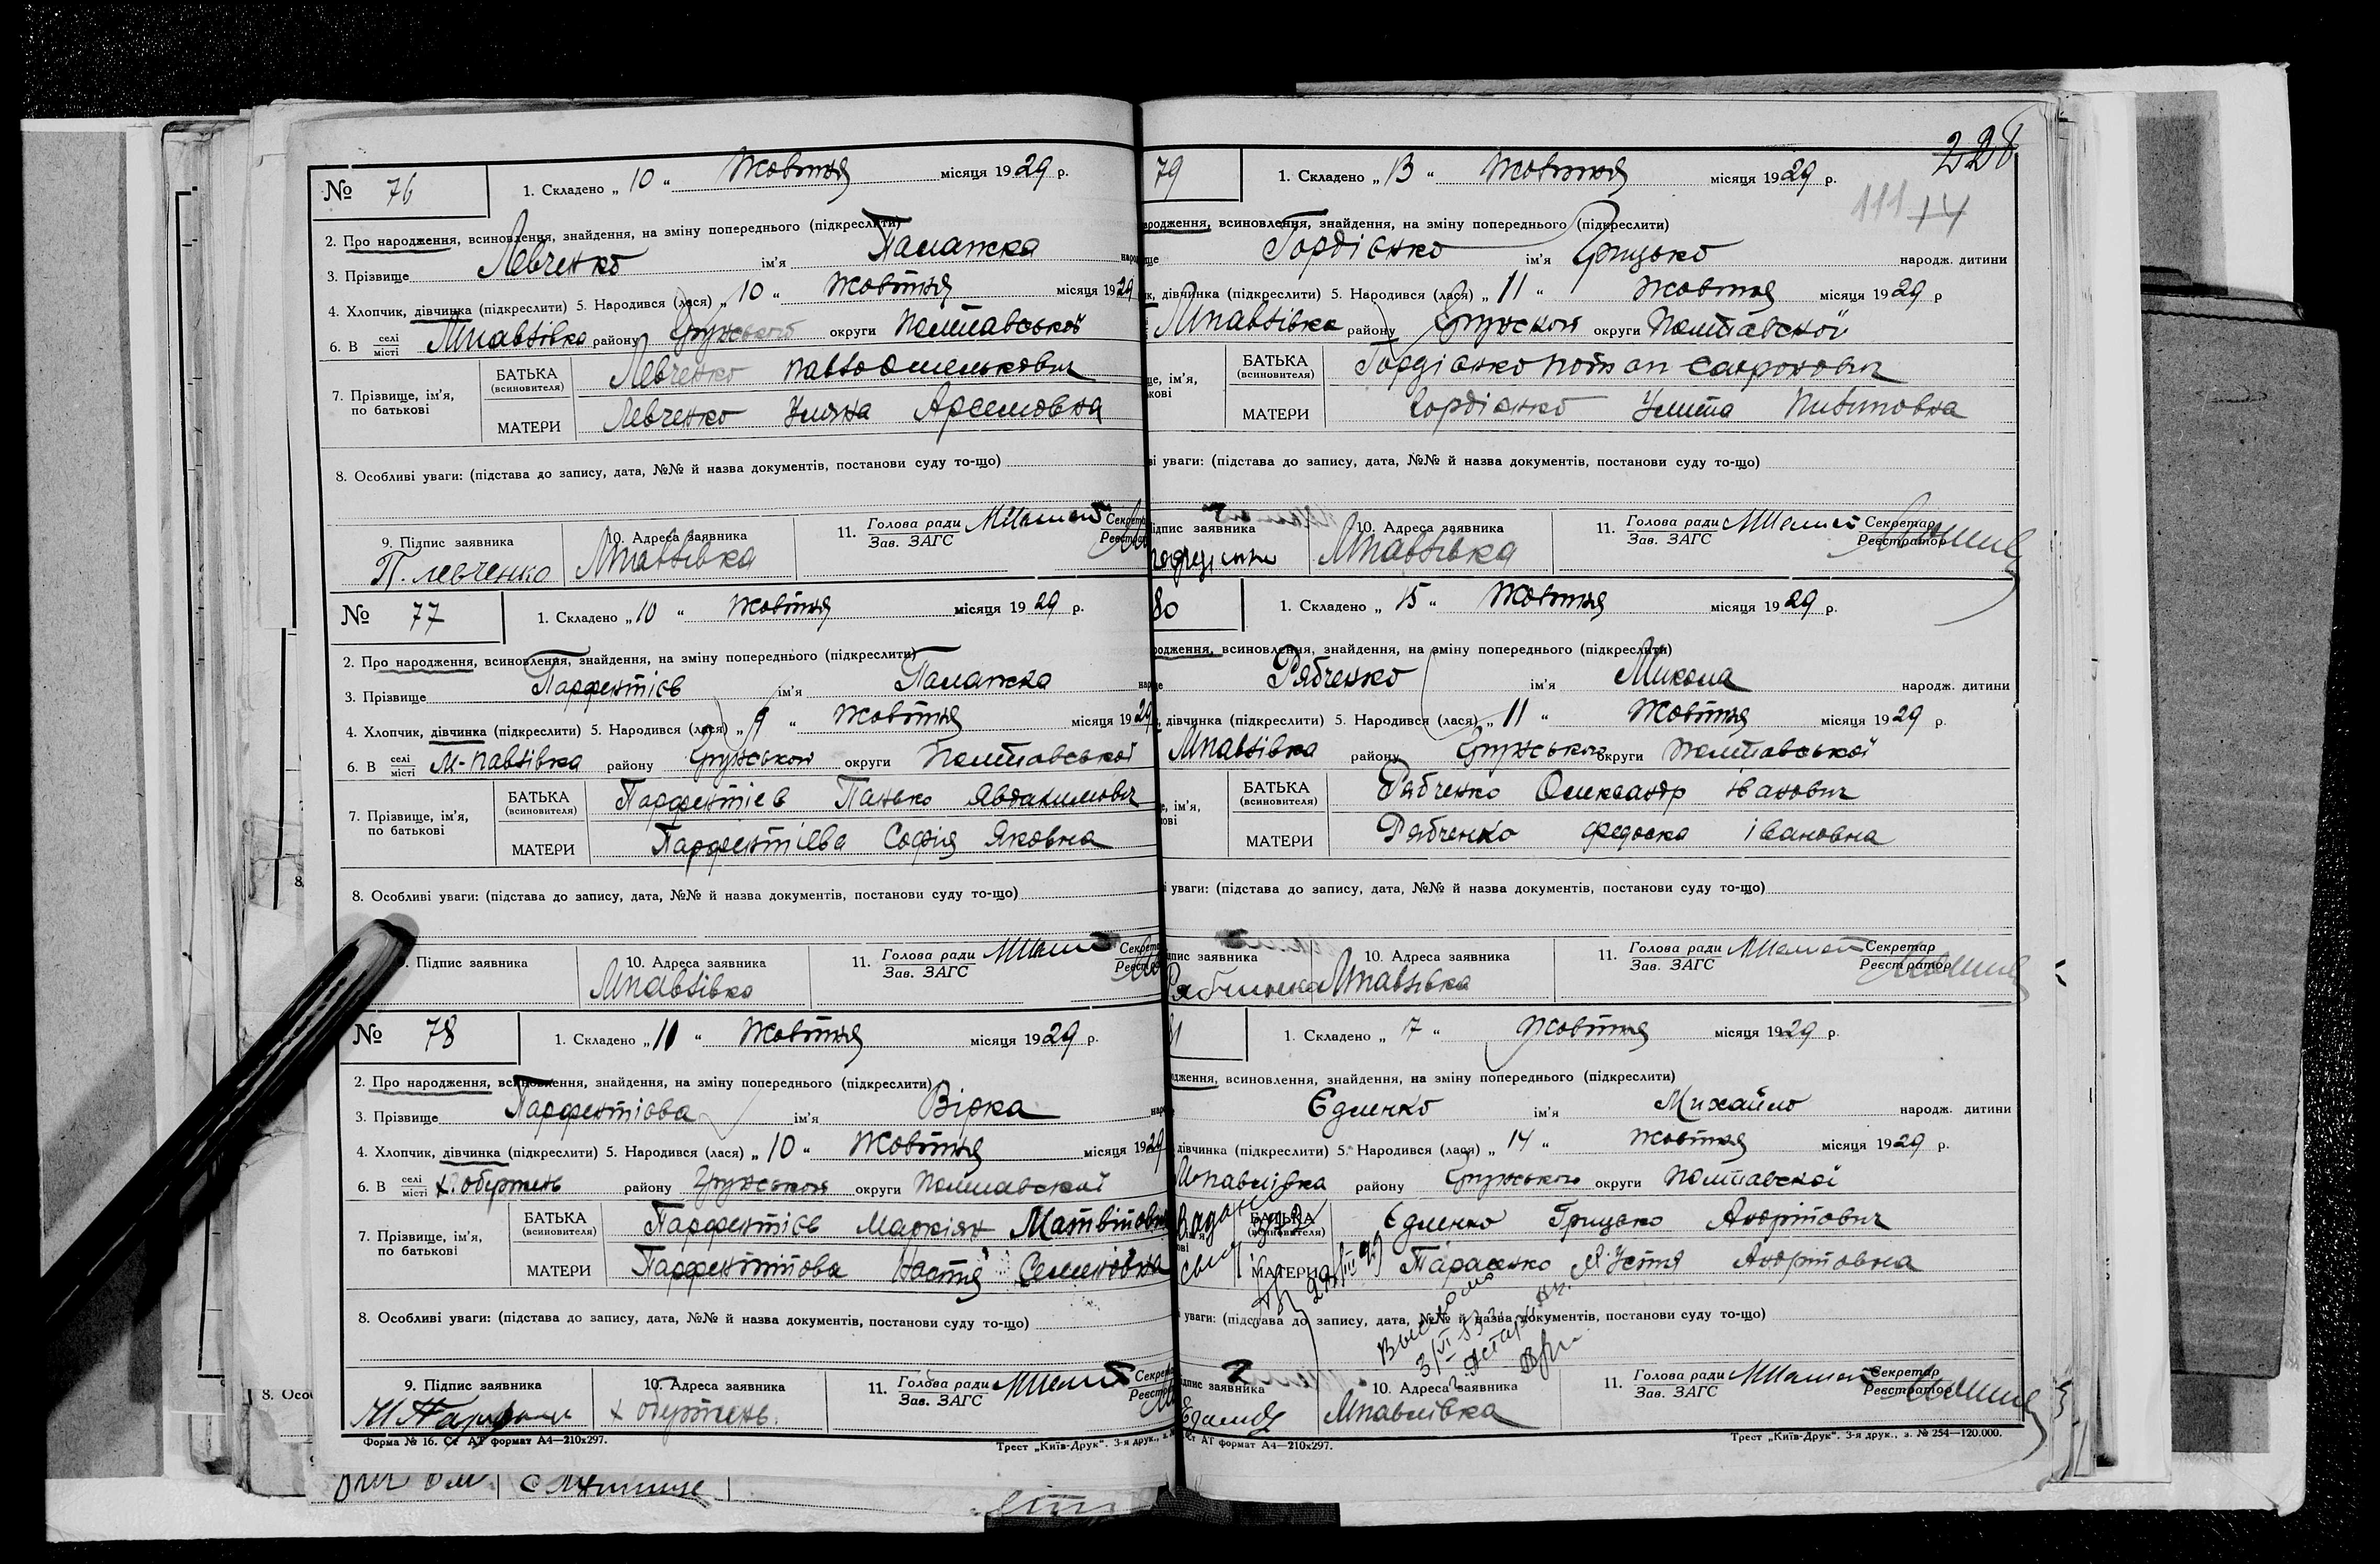 № 76
1. Складено „ 10 “ Жовтня місяця 1929 р.
2. Про народження, всиновлення, знайдення, на зміну попереднього (підкреслити)
3. Прізвище Левченко ім'я Палажка
4. Хлопчик, дівчинка (підкреслити) 5. Народився (лася) „ 10 “ Жовтня місяця 1929
6. В селі місті Мпавлівка району округи Полтавської
7. Прізвище, ім'я, по батькові
БАТЬКА (всиновителя) Левченко Павло Омелькович
МАТЕРИ Левченко Уляна Арсемовна
8. Особливі уваги: (підстава до запису, дата, №№ й назва документів, постанови суду то-що)
9. Підпис заявника П. Левченко
10. Адреса заявника Мпавлівка
11. Голова ради Зав. ЗАГС
№ 77
1. Складено „ 10 “ Жовтня місяця 1929 р.
2. Про народження, всиновлення, знайдення, на зміну попереднього (підкреслити)
3. Прізвище Парфентієв ім'я Палажка
4. Хлопчик, дівчинка (підкреслити) 5. Народився (лася) „ 9 “ Жовтня місяця 1929
6. В селі місті М-павлівка району округи Полтавської
7. Прізвище, ім'я, по батькові
БАТЬКА (всиновителя) Парфентієв Панько Явдакимович
МАТЕРИ Парфентієва Софія Яковна
8. Особливі уваги: (підстава до запису, дата, №№ й назва документів, постанови суду то-що)
Підпис заявника
10. Адреса заявника Мпавлівка
11. Голова ради Зав. ЗАГС
№ 78
1. Складено „ 11 “ Жовтня місяця 1929 р.
2. Про народження, всиновлення, знайдення, на зміну попереднього (підкреслити)
3. Прізвище Парфентієва ім'я Вірка
4. Хлопчик, дівчинка (підкреслити) 5. Народився (лася) „ 10 “ Жовтня місяця 1929
6. В селі місті х. обертень району округи Полтавської
7. Прізвище, ім'я, по батькові
БАТЬКА (всиновителя) Парфентієв Маркіян
МАТЕРИ Настя Семеновна
8. Особливі уваги: (підстава до запису, дата, №№ й назва документів, постанови суду то-що)
9. Підпис заявника
10. Адреса заявника х обертень
11. Голова ради Зав. ЗАГС
Форма № 16. Ст АТ формат А4—210х297.
Трест „Київ-Друк“. 3-я друк.,
228
111 14
79
1. Складено „ 13 “ Жовтня місяця 1929 р.
всиновлення, знайдення, на зміну попереднього (підкреслити)
Гордієнко ім'я Грицько народж. дитини
дівчинка (підкреслити) 5. Народився (лася) „ 11 “ Жовтня місяця 1929 р
Мпавлівка району округи Полтавської
БАТЬКА (всиновителя) Гордієнко Потап
МАТЕРИ Гордієнко Улита
уваги: (підстава до запису, дата, №№ й назва документів, постанови суду то-що)
заявника
10. Адреса заявника Мпавлівка
11. Голова ради Зав. ЗАГС
Секретар Реєстратор
80
1. Складено „ 15 “ Жовтня місяця 1929 р.
всиновлення, знайдення, на зміну попереднього (підкреслити)
Рябченко ім'я Микола народж. дитини
дівчинка (підкреслити) 5. Народився (лася) „ 11 “ Жовтня місяця 1929 р.
Мпавлівка району округи Полтавської
БАТЬКА (всиновителя) Рябченко Олександр Іванович
МАТЕРИ Рябченко Федоска Івановна
уваги: (підстава до запису, дата, №№ й назва документів, постанови суду то-що)
заявника
10. Адреса заявника Мпавлівка
11. Голова ради Зав. ЗАГС
Секретар Реєстратор
1. Складено „ 7 “ Жовтня місяця 1929 р.
всиновлення, знайдення, на зміну попереднього (підкреслити)
Єдленко ім'я Михайло народж. дитини
дівчинка (підкреслити) 5. Народився (лася) „ 14 “ Жовтня місяця 1929 р.
Мпавлівка району округи Полтавської
БАТЬКА (всиновителя) Єдленко Грицько Андрійович
МАТЕРИ Тарасенко Устя Андрійовна
уваги: (підстава до запису, дата, №№ й назва документів, постанови суду то-що)
заявника
10. Адреса заявника Мпавлівка
11. Голова ради Зав. ЗАГС
Секретар Реєстратор
Ст АТ формат А4—210х297.
Трест „Київ-Друк“. 3-я друк., з. № 254—120.000.